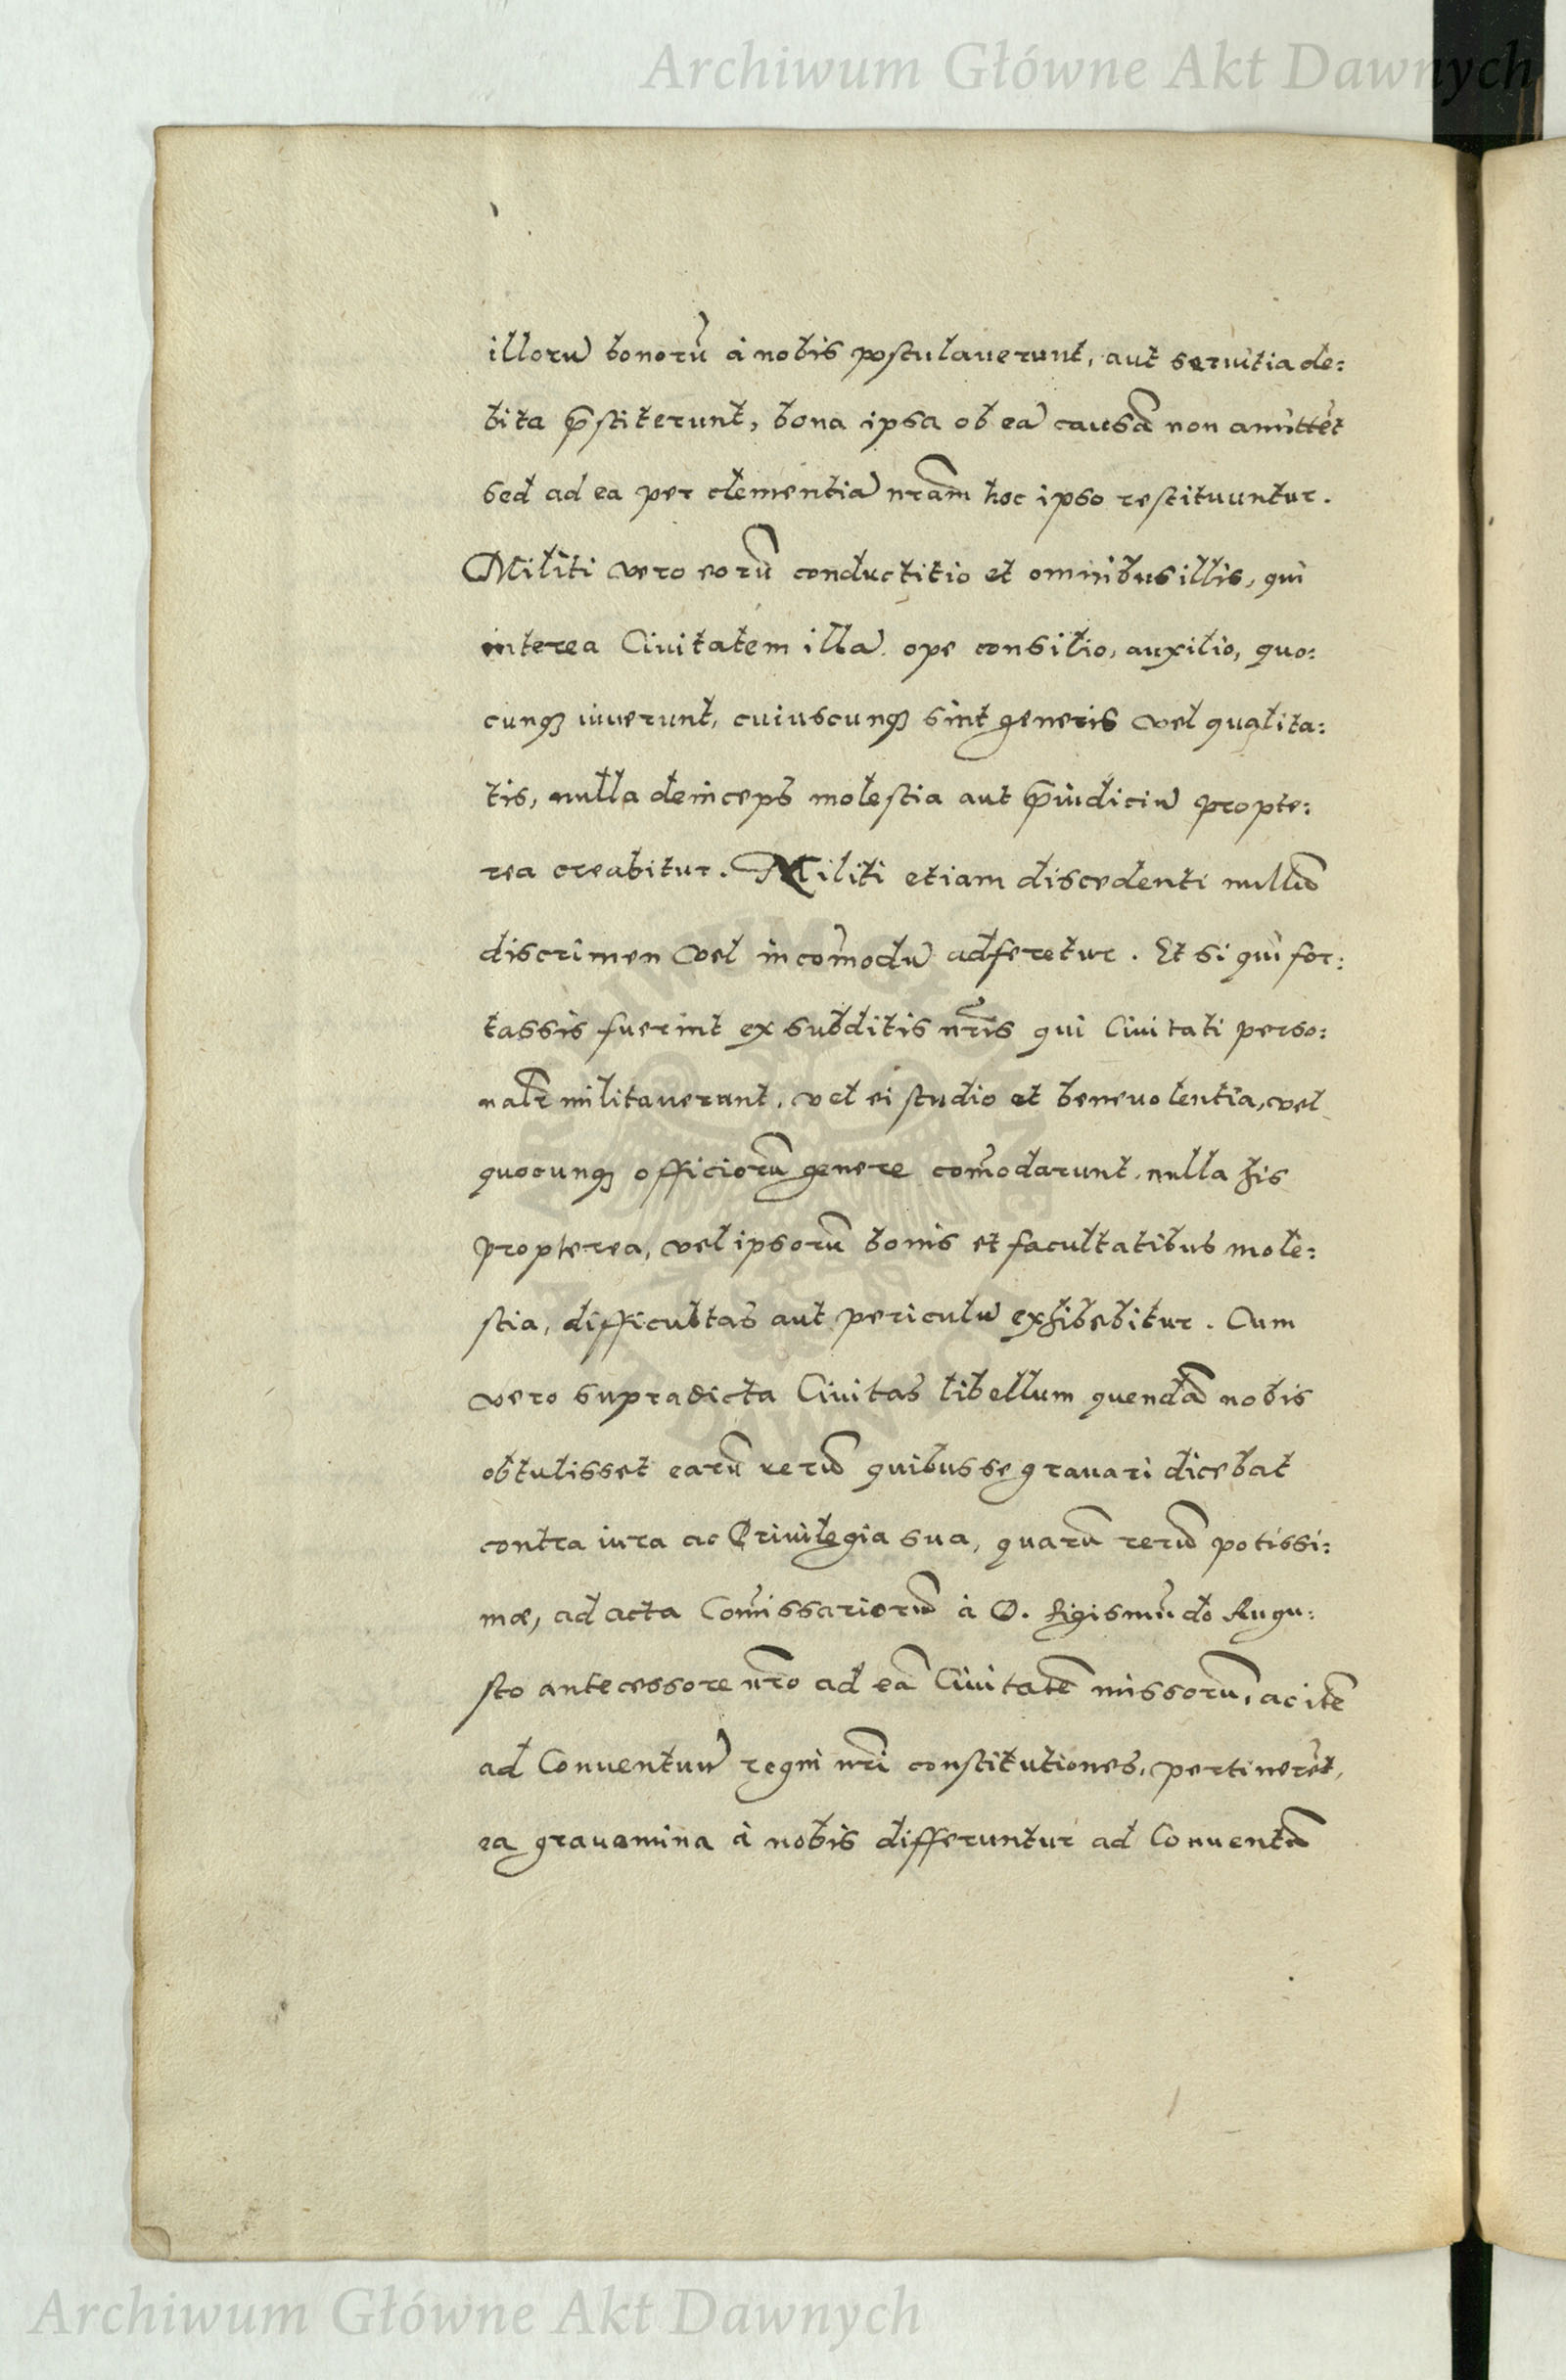 Archiwum Główne Akt Dawnych
illorū bonorū à nobis postulauerunt, aut seruitia de:
bita p̄stiterunt, bona ipsa ob eā causā non amittēt
sed ad ea per clementiā nr̄am hoc ipso restituuntur.
Militi vero eorū conductitio et omnibus illis, qui
interea Ciuitatem illā ope consilio, auxilio, quo:
cunqꝫ iuuerunt, cuiuscunqꝫ sint generis vel qualita:
tis, nulla deinceps molestia aut p̄iudiciū propte:
rea creabitur. Militi etiam discedenti nullū
discrimen vel incōmodū adferetur. Et si qui for:
tassis fuerint ex subditis nr̄is qui Ciuitati perso:
nalr̄ militauerunt, vel ei studio et beneuolentia, vel
quocunqꝫ officiorū genere cōmodarunt, nulla his
propterea, vel ipsorū bonis et facultatibus mole:
stia, difficultas aut periculū exhibebitur. Cum
vero supradicta Ciuitas libellum quendā nobis
obtulisset earū rerū quibus se grauari dicebat
contra iura ac Priuilegia sua, quarū rerū potissi:
mæ, ad acta Cōmissariorū à D. Sigismūdo Augu:
sto antecessore nr̄o ad eā Ciuitatē missorū, ac itē
ad Conuentuū regni nr̄i constitutiones, pertinerēt,
ea grauamina à nobis differuntur ad Conuentū
Archiwum Główne Akt Dawnych